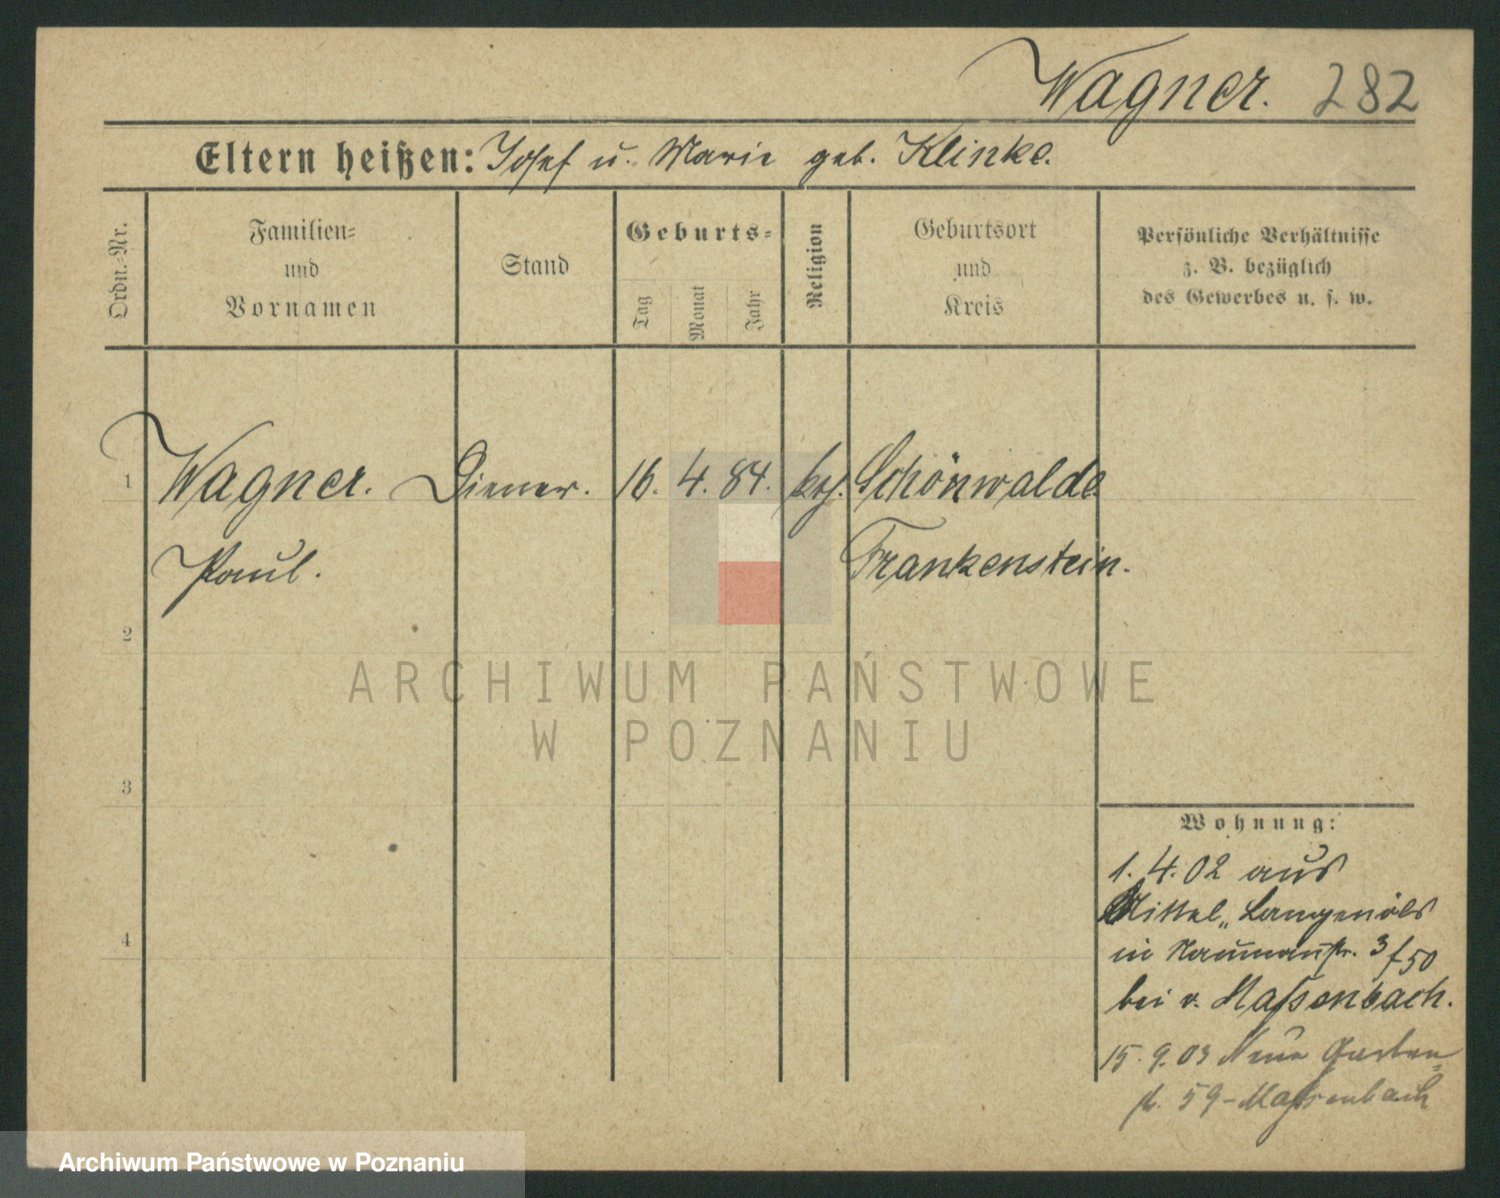 Wagner. 282
Eltern heißen: Josef u. Marie geb. Klinke.
Ordn.-Nr.
Familien-
und
Vornamen
Stand
Geburts-
Tag
Monat
Jahr
Religion
Geburtsort
und
Kreis
Persönliche Verhältnisse
z. B. bezüglich
des Gewerbes u. s. w.
1 Wagner. Diener. 16. 4. 84. Schönwalde
Paul. Frankenstein.
2
ARCHIWUM PAŃSTWOWE
W POZNANIU
3
Wohnung:
1. 4. 02 aus
Mittel „ Langenöls
4
in Naumannstr. 3 f 50
bei v. Massenbach.
15. 9. 03 Neue Garten-
str. 59 - Massenbach
Archiwum Państwowe w Poznaniu